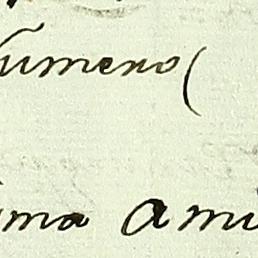 Numero(
ima ami